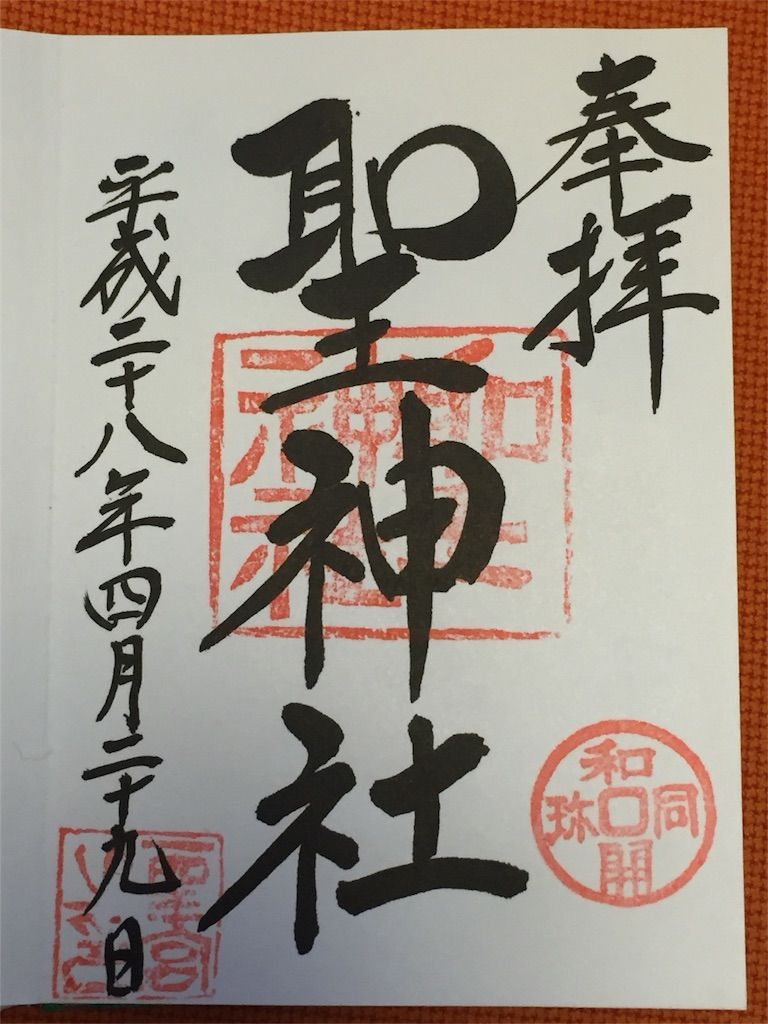 奉拝
聖神社
平成二十八年四月二十九日
和同開珎